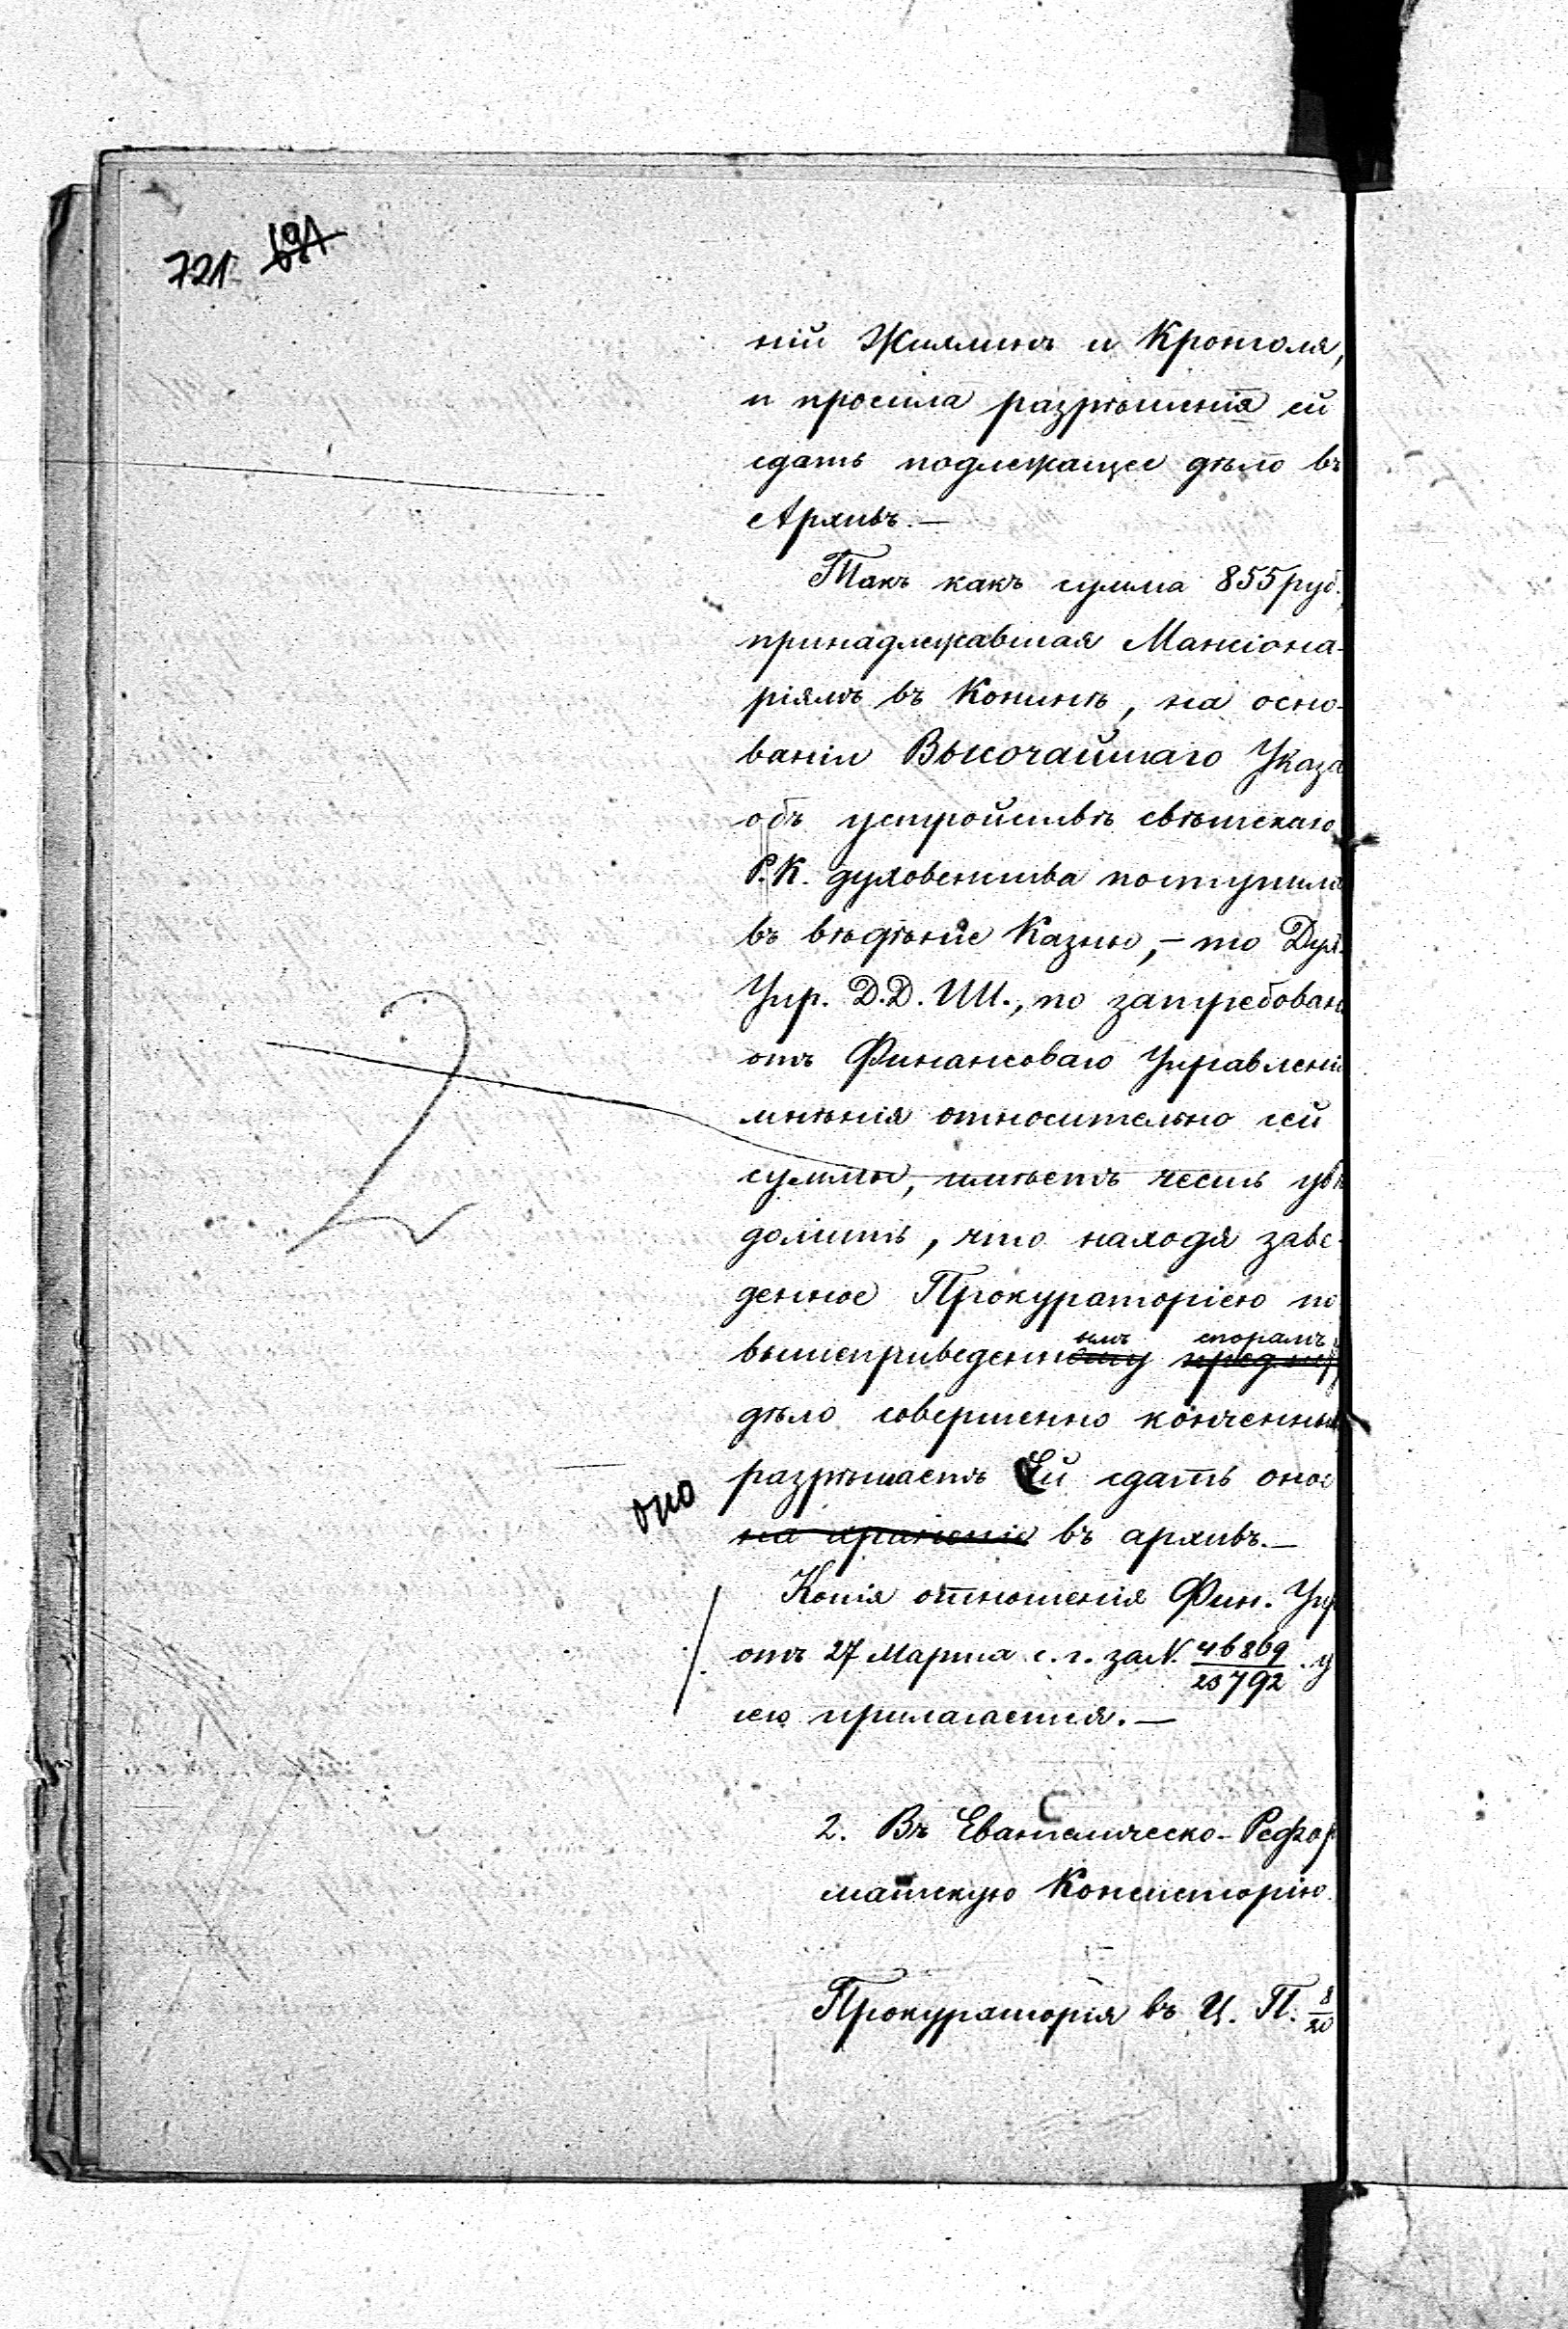 721 691
ній Жилинъ и Кронголя,
и просила разрѣшенія ей
сдать подлежащее дѣло въ
Архивъ.—
Такъ какъ сумма 855 руб.,
принадлежавшая Мансіона-
ріямъ въ Конинѣ, на осно-
ваніи Высочайшаго Указа
объ устройствѣ свѣтскаго
Р.К. духовенства поступила
въ вѣдѣніе Казны,– то Дух.
Упр. Д.Д. И., по затребован
отъ Финансоваго Управлені
мнѣнія относительно сей
суммы, имѣетъ честь увѣ
домить, что находя заве-
денное Прокураторіею по
нымъ спорамъ
вышеприведенному предмету
дѣло совершенно конченны
разрѣшаетъ Ей сдать оное
оно
на храненіе въ архивъ.—
Копія отношенія Фин. Упр
отъ 27 Марта с. г. за N. 46869/23792 . у
сего прилагается.—
2. Въ Евангелическо-Рефор
матскую Консисторію.
Прокураторія въ Ц. П. 8/20